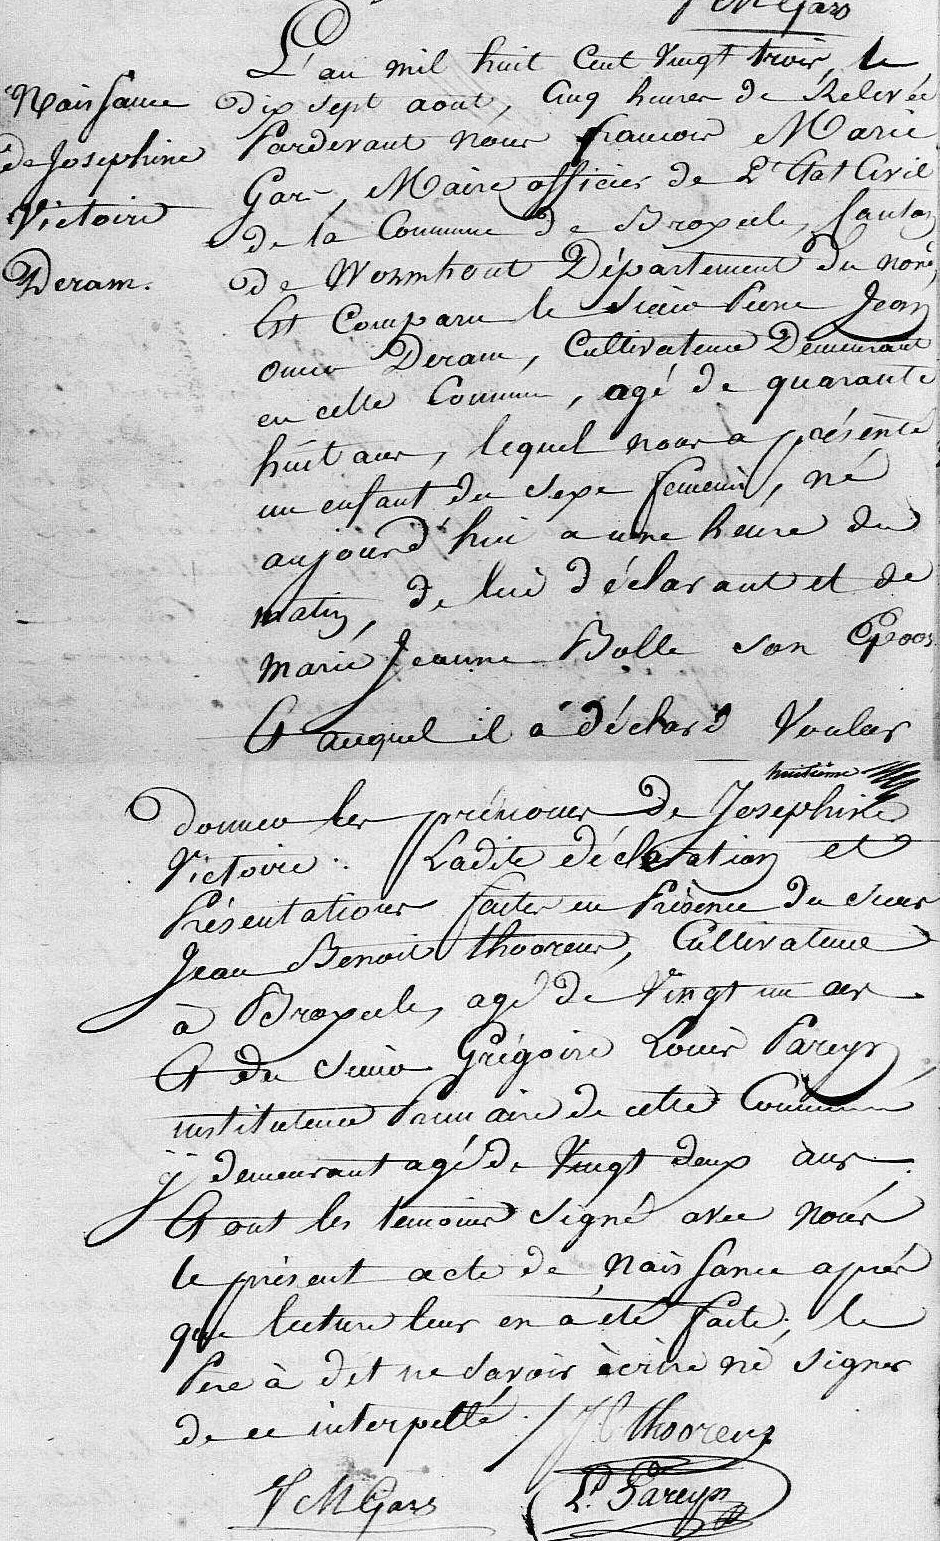 V M Gars
Naissance
de Josephine
Victoire
Deram.
L'an mil huit Cent Vingt trois, le
dix sept aout, Cinq heures de Relevée
Pardevant nous francois Marie
Gars, Maire officier de L'Etat Civil
de la Commune de Broxeele, Canton
de Wormhout Département du nord,
Est Comparu le Sieur Pierre Jean
omer Deram, Cultivateur Demeurant
en cette Commune, agé de quarante
huit ans, lequel nous a présenté
un enfant du Sexe femenin, né
aujourd'hui a une heure du
matin, de lui déclarant et de
marie Jeanne Bolle son Epoos
Et auquel il a déclaré Vouloir
huitième
donner les prénoms de Josephine
Victoire. Ladite déclaration et
Présentations faites en Présence du Sieur
Jean Benoit thooreus, Cultivateur
à Broxeele, agé de Vingt un ans
Et du Sieur Grégoire Louis Pareyn
instituteur Primaire de cette Commune
ÿ demeurant agé de Vingt deux ans.
Et ont les temoins signé avec nous
le présent acte de naissance aprés
que lecture leur en a été faite, le
Pere à dit ne savoir écrire ni signer
de ce interpellé. / J B thooreus
V M Gars L. Pareyn